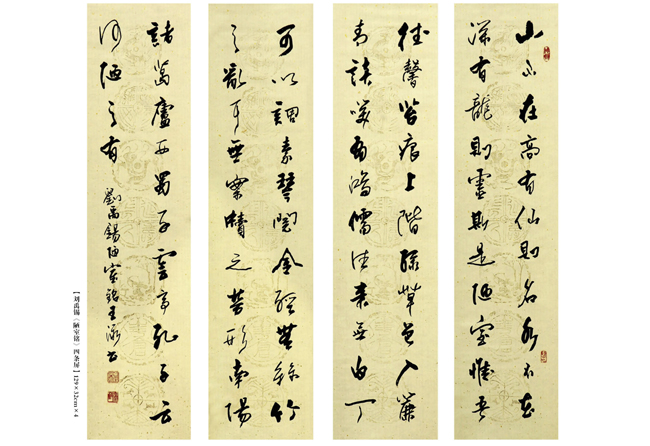 山不在高有仙則名水不在
深有龍則靈斯是陋室惟吾
德馨苔痕上階綠草色入簾
青談笑有鴻儒往來無白丁
可以調素琴閱金經無絲竹
之亂耳無案牘之勞形南陽
諸葛廬西蜀子雲亭孔子云
何陋之有
劉禹錫陋室銘王
【刘禹锡《陋室铭》四条屏】129×32cm×4